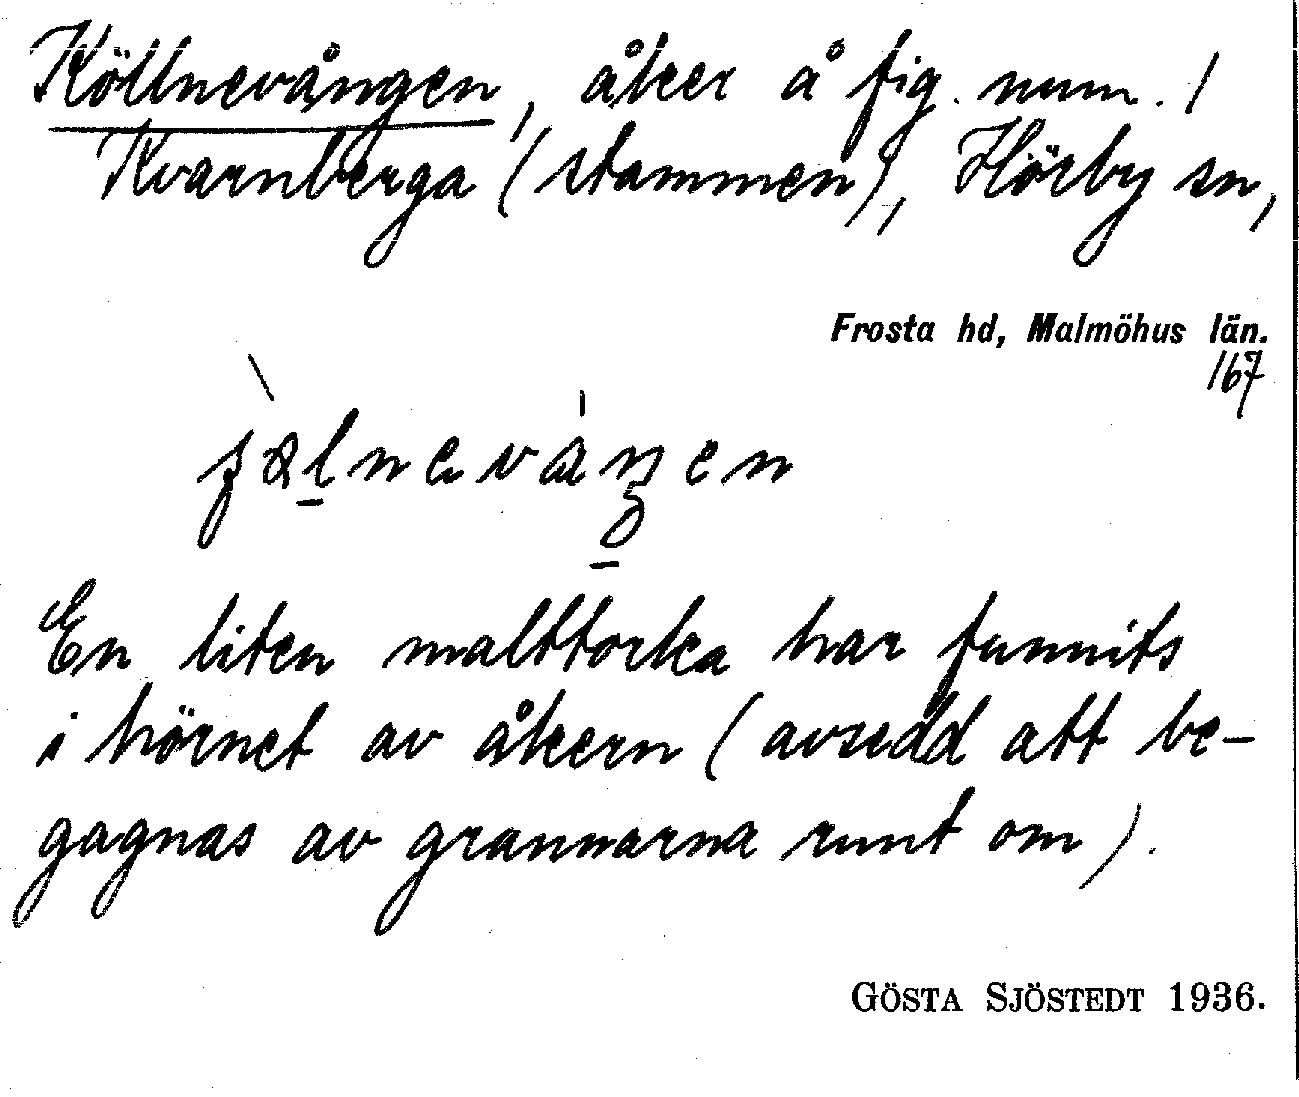 Köllnevången, åker å fig. num. 1
Kvarnberga (stammen), Hörby sn,
Frosta hd, Malmöhus län.
167
En liten malttorka har funnits
i hörnet av åkern (avsedd att be-
gagnas av grannarna runt om).
GÖSTA SJÖSTEDT 1936.